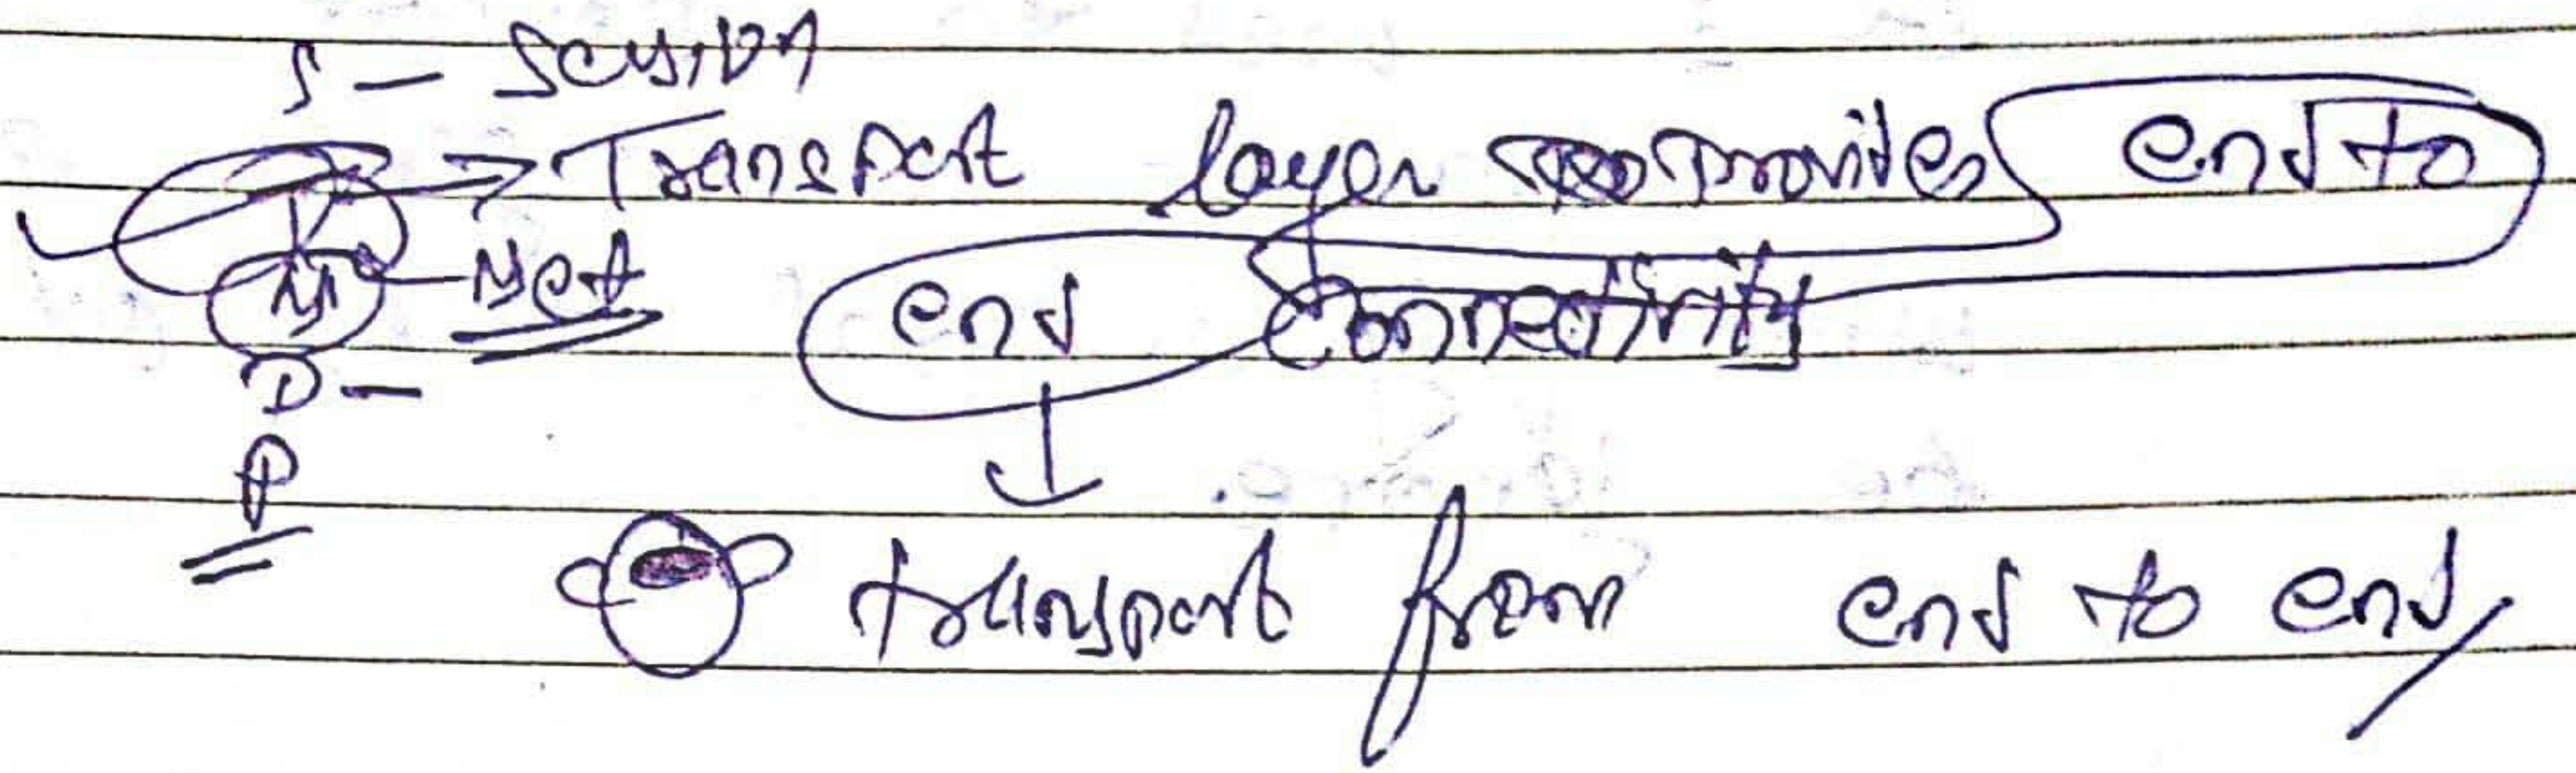 S - Session
T → Transport layer provides end to
N - Net end connectivity
D -
P
transport from end to end